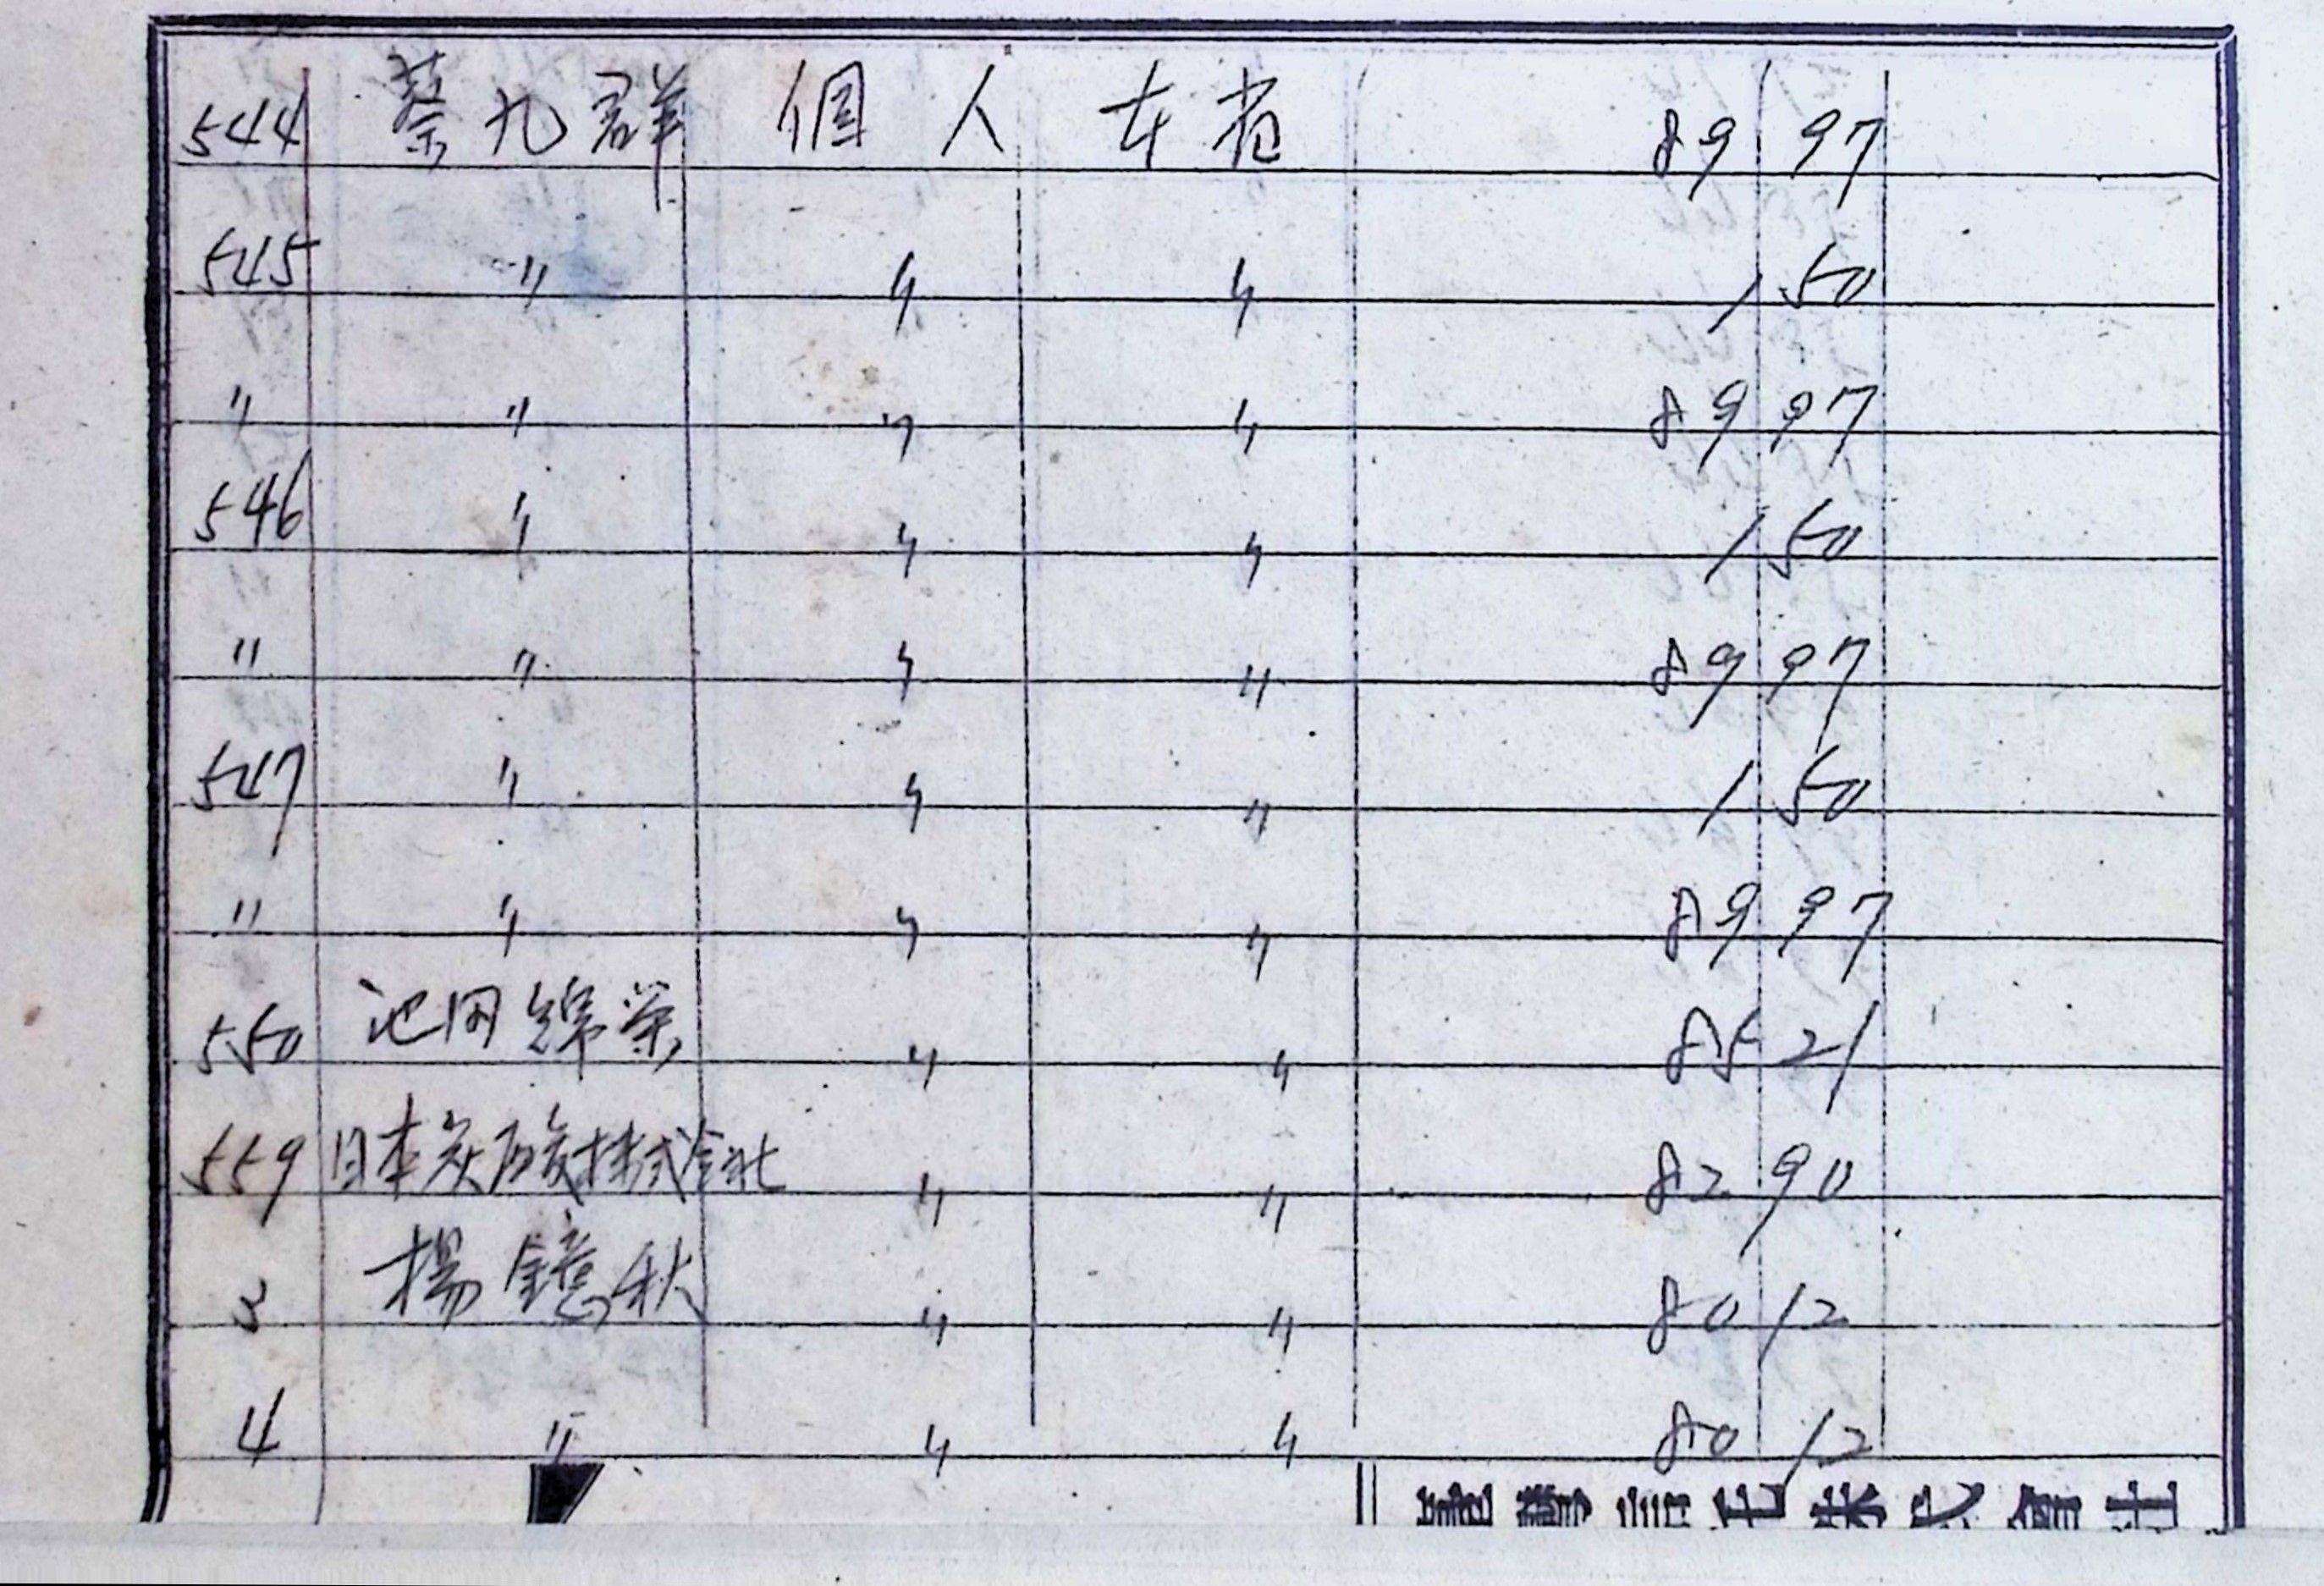 544 蔡九群 個人 本省 89 97
545 〃 〃 〃 1 50
〃 〃 〃 〃 89 97
546 〃 〃 〃 1 50
〃 〃 〃 〃 89 97
547 〃 〃 〃 1 50
〃 〃 〃 〃 89 97
550 池田錦榮 〃 〃 85 21
559 日本炭酸株式会社 〃 〃 82 90
3 楊鐘秋 〃 〃 80 12
4 〃 〃 〃 80 12